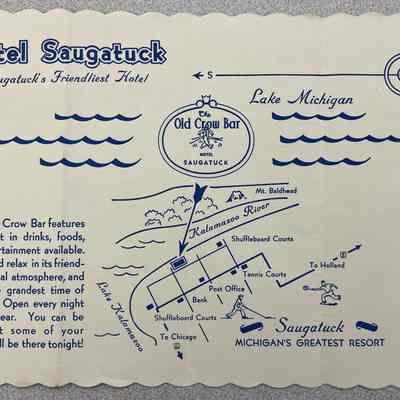 tel Saugatuck
ugatuck's Friendliest Hotel
S
Lake Michigan
The
Old Crow Bar
HOTEL
SAUGATUCK
Mt. Baldhead
Kalamazoo River
Shuffleboard Courts
To Holland
Tennis Courts
Post Office
Bank
Shuffleboard Courts
To Chicago
Lake Kalamazoo
Saugatuck
MICHIGAN'S GREATEST RESORT
Crow Bar features
t in drinks, foods,
ertainment available.
d relax in its friend-
al atmosphere, and
e grandest time of
Open every night
ear. You can be
t some of your
ll be there tonight!